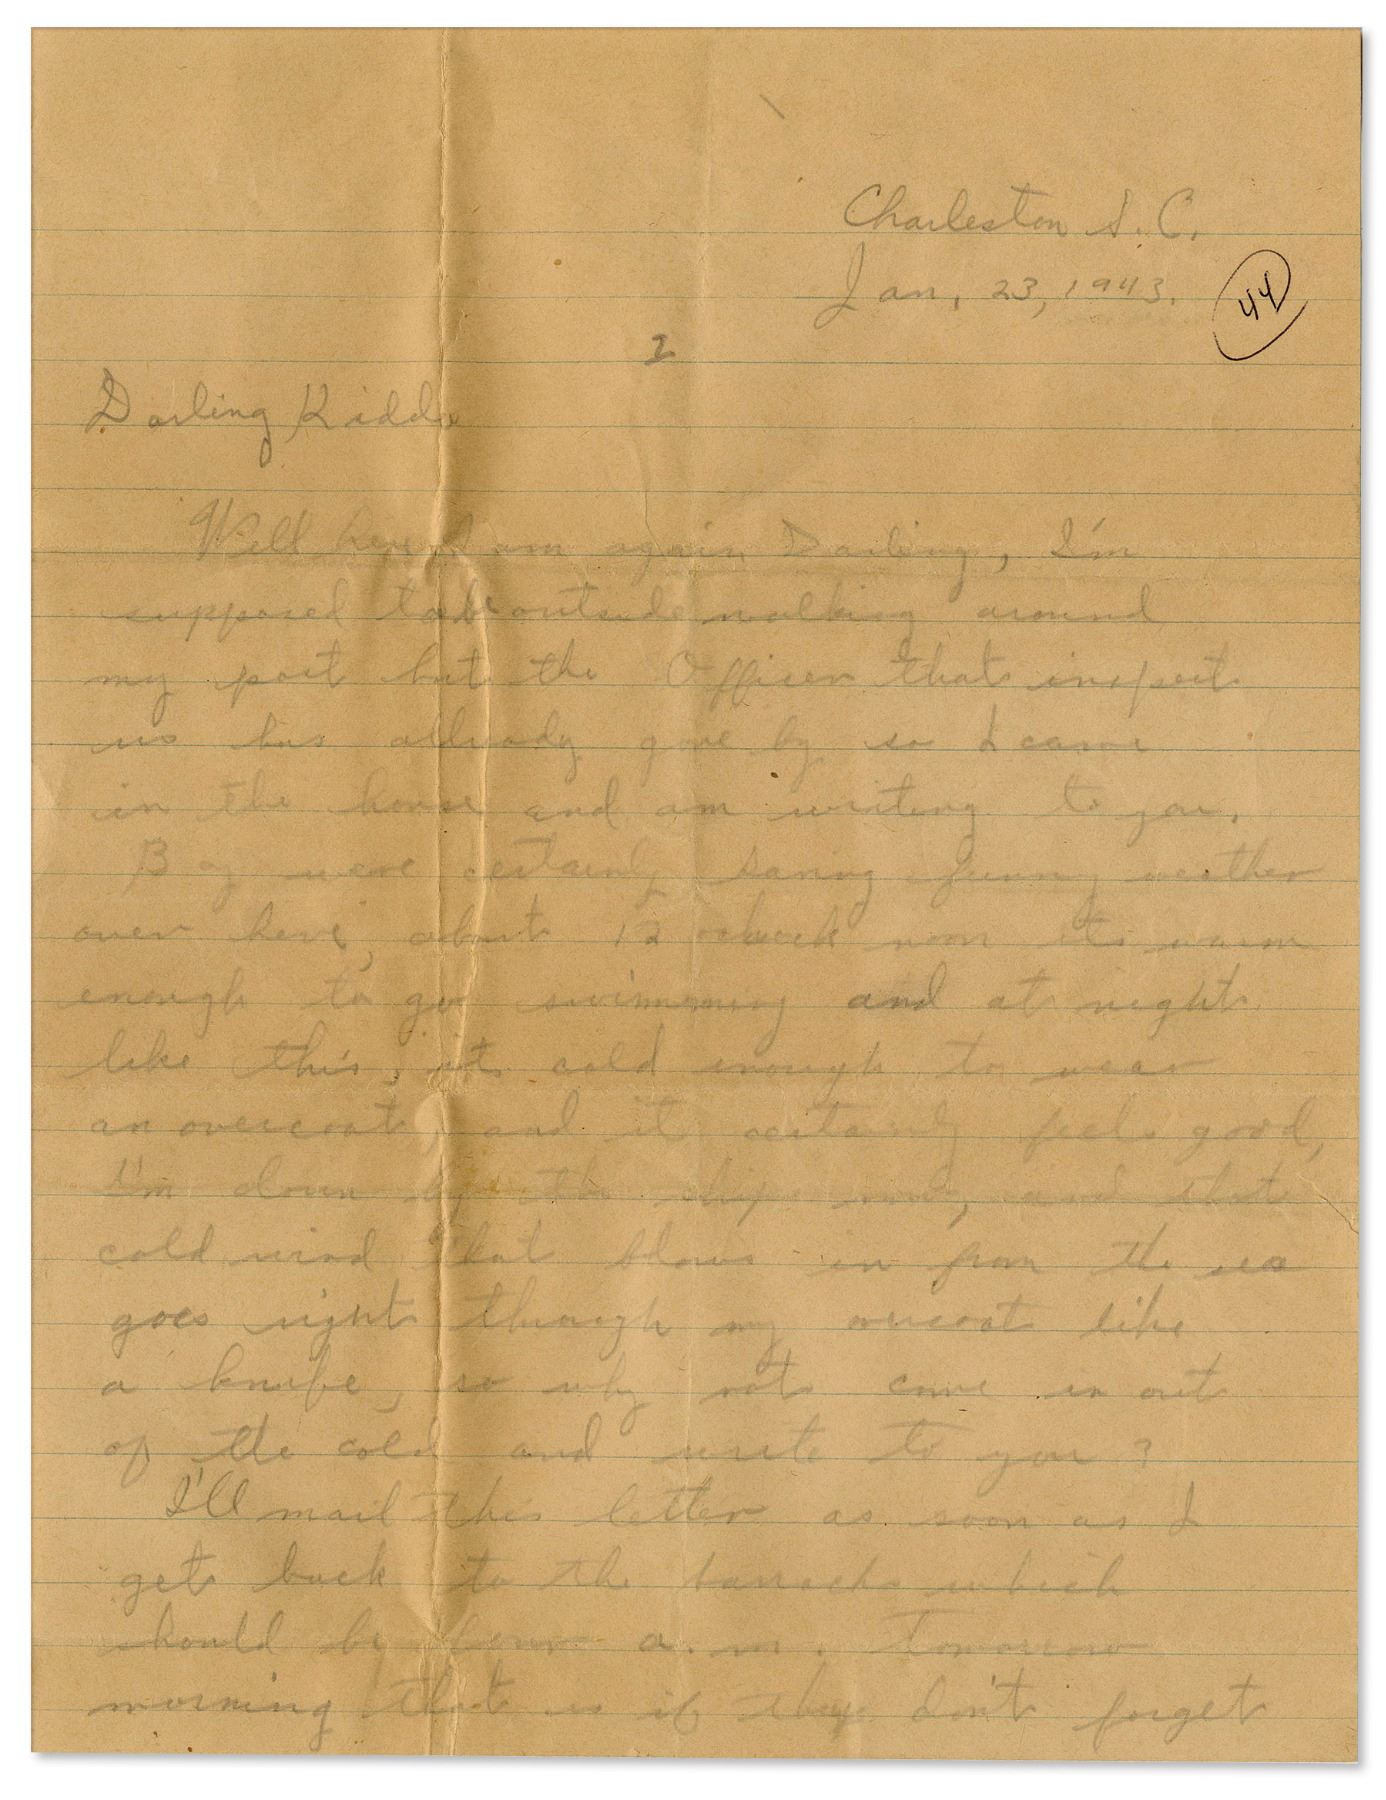 Charleston S. C.
Jan, 23, 1943.
44
I
Darling Kiddo
Well here I am again Darling, I'm
supposed to be outside walking around
my post but the Officer that inspects
us has allready gone by so I came
in the house and am writing to you.
Boy were certainly having funny weather
over here, about 12 oclock noon its warm
enough to go swimming and at night
like this, its cold enough to wear
an overcoat, and it certainly feels good,
I'm down by the ships now, and that
cold wind that blows in from the sea
goes right through my overcoat like
a knife, so why not come in out
of the cold and write to you?
I'll mail this letter as soon as I
get back to the barracks which
should be four a.m. Tomorrow
morning that is if they don't forget